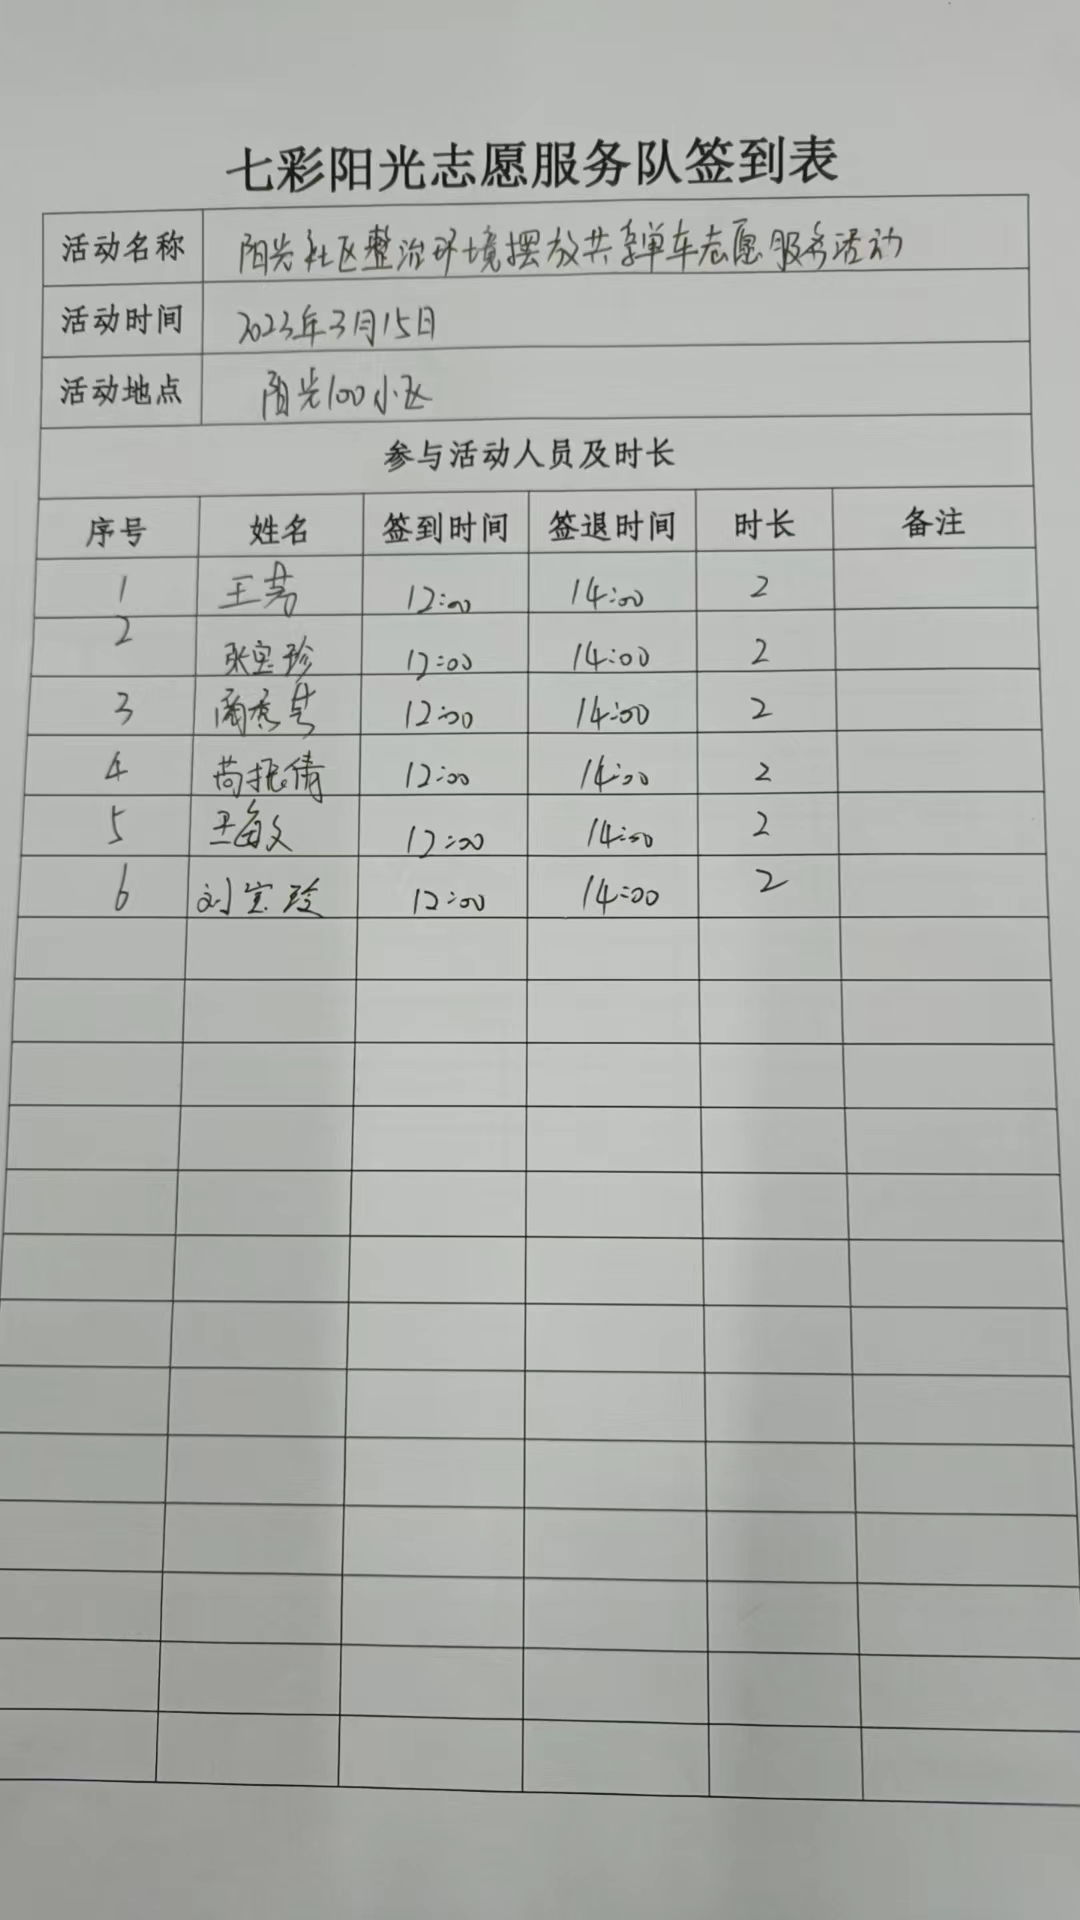 七彩阳光志愿服务队签到表
活动名称 阳光社区整治环境摆放共享单车志愿服务活动
活动时间 2023年3月15日
活动地点 阳光100小区
参与活动人员及时长
序号 姓名 签到时间 签退时间 时长 备注
1 王芳 12:00 14:00 2
2 张宝珍 12:00 14:00 2
3 12:00 14:00 2
4 苟振倩 12:00 14:00 2
5 王敏文 12:00 14:00 2
6 刘宝玲 12:00 14:00 2